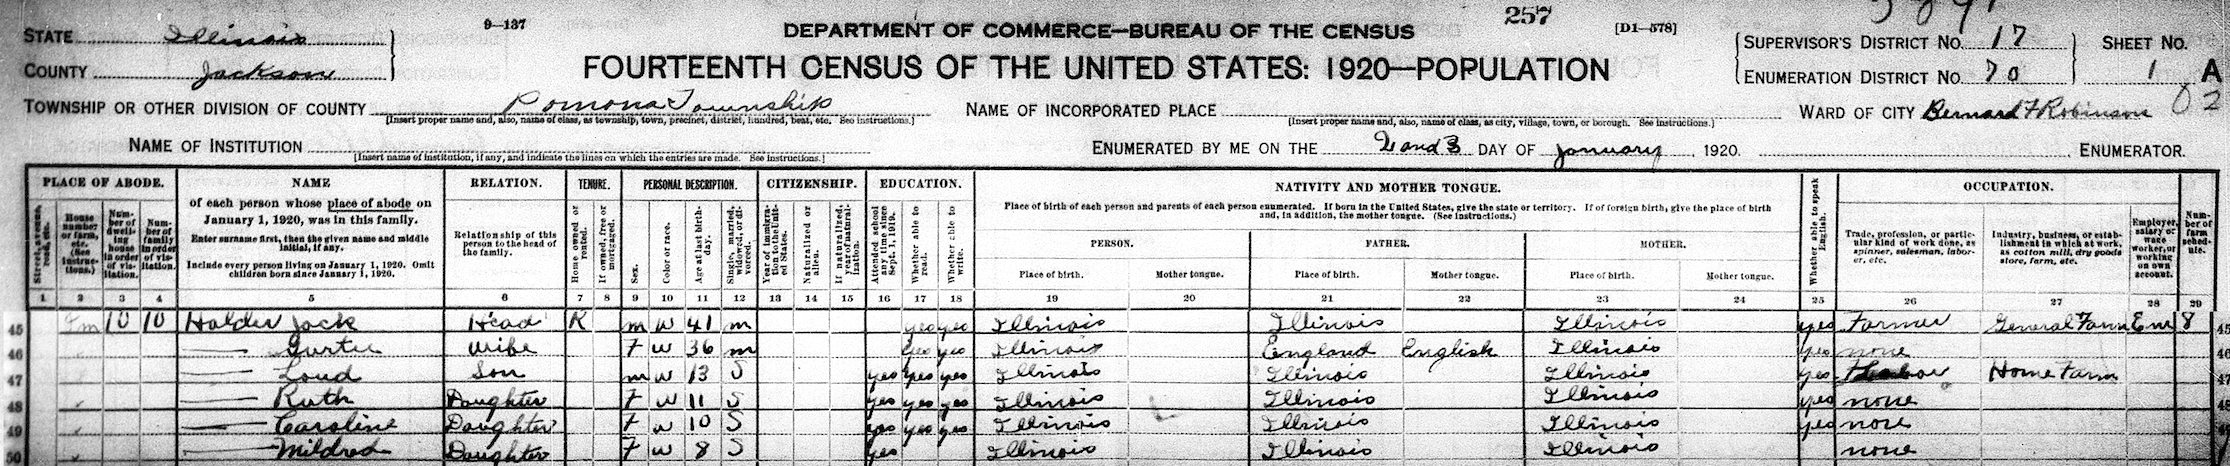 9–137
257
DEPARTMENT OF COMMERCE—BUREAU OF THE CENSUS
[D1—578]
FOURTEENTH CENSUS OF THE UNITED STATES: 1920—POPULATION
STATE Illinois
COUNTY Jackson
SUPERVISOR'S DISTRICT NO. 17
ENUMERATION DISTRICT NO. 70
SHEET NO.
1 A
TOWNSHIP OR OTHER DIVISION OF COUNTY Pomona Township
[Insert proper name and, also, name of class, as township, town, precinct, district, hundred, beat, etc. See instructions.]
NAME OF INCORPORATED PLACE
[Insert proper name and, also, name of class, as city, village, town, or borough. See instructions.]
WARD OF CITY
Bernard F Robinson
02
NAME OF INSTITUTION
[Insert name of institution, if any, and indicate the lines on which the entries are made. See instructions.]
ENUMERATED BY ME ON THE 2 and 3 DAY OF January, 1920. ENUMERATOR.
PLACE OF ABODE. NAME RELATION. TENURE. PERSONAL DESCRIPTION. CITIZENSHIP. EDUCATION. NATIVITY AND MOTHER TONGUE. OCCUPATION.
Street, avenue, road, etc.
House number or farm, etc. (See instructions.)
Number of dwelling house in order of visitation.
Number of family in order of visitation.
of each person whose place of abode on January 1, 1920, was in this family.
Enter surname first, then the given name and middle initial, if any.
Include every person living on January 1, 1920. Omit children born since January 1, 1920.
Relationship of this person to the head of the family.
Home owned or rented.
If owned, free or mortgaged.
Sex.
Color or race.
Age at last birthday.
Single, married, widowed, or divorced.
Year of immigration to the United States.
Naturalized or alien.
If naturalized, year of naturalization.
Attended school any time since Sept. 1, 1919.
Whether able to read.
Whether able to write.
Place of birth of each person and parents of each person enumerated. If born in the United States, give the state or territory. If of foreign birth, give the place of birth and, in addition, the mother tongue. (See instructions.)
PERSON. FATHER. MOTHER.
Place of birth. Mother tongue. Place of birth. Mother tongue. Place of birth. Mother tongue.
Whether able to speak English.
Trade, profession, or particular kind of work done, as spinner, salesman, laborer, etc.
Industry, business, or establishment in which at work, as cotton mill, dry goods store, farm, etc.
Employer, salary or wage worker, or working on own account.
Number of farm schedule.
1 2 3 4 5 6 7 8 9 10 11 12 13 14 15 16 17 18 19 20 21 22 23 24 25 26 27 28 29
45 Fm 10 10 Holder Jack Head R m W 41 m yes yes Illinois Illinois Illinois yes Farmer General Farm Em 8 45
46 —— Gurtie Wife F W 36 m yes yes Illinois England English Illinois yes none 46
47 —— Loud Son m W 13 S yes yes yes Illinois Illinois Illinois yes Home Farm 47
48 —— Ruth Daughter F W 11 S yes yes yes Illinois Illinois Illinois yes none 48
49 —— Caroline Daughter F W 10 S yes yes yes Illinois Illinois Illinois yes none
50 —— Mildred Daughter F W 8 S yes Illinois Illinois Illinois none